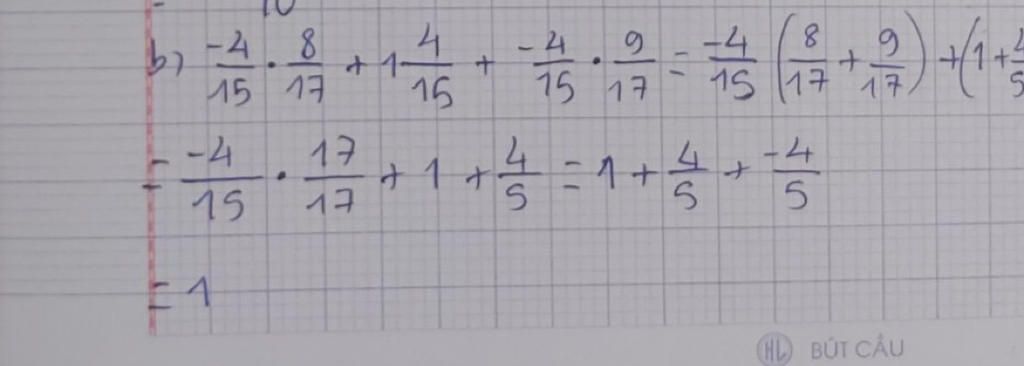 b) -4/15 · 8/17 + 1 4/15 + -4/15 · 9/17 = -4/15 (8/17 + 9/17) + (1 + 4/5
= -4/15 · 17/17 + 1 + 4/5 = 1 + 4/5 + -4/5
= 1
HL BÚT CẦU